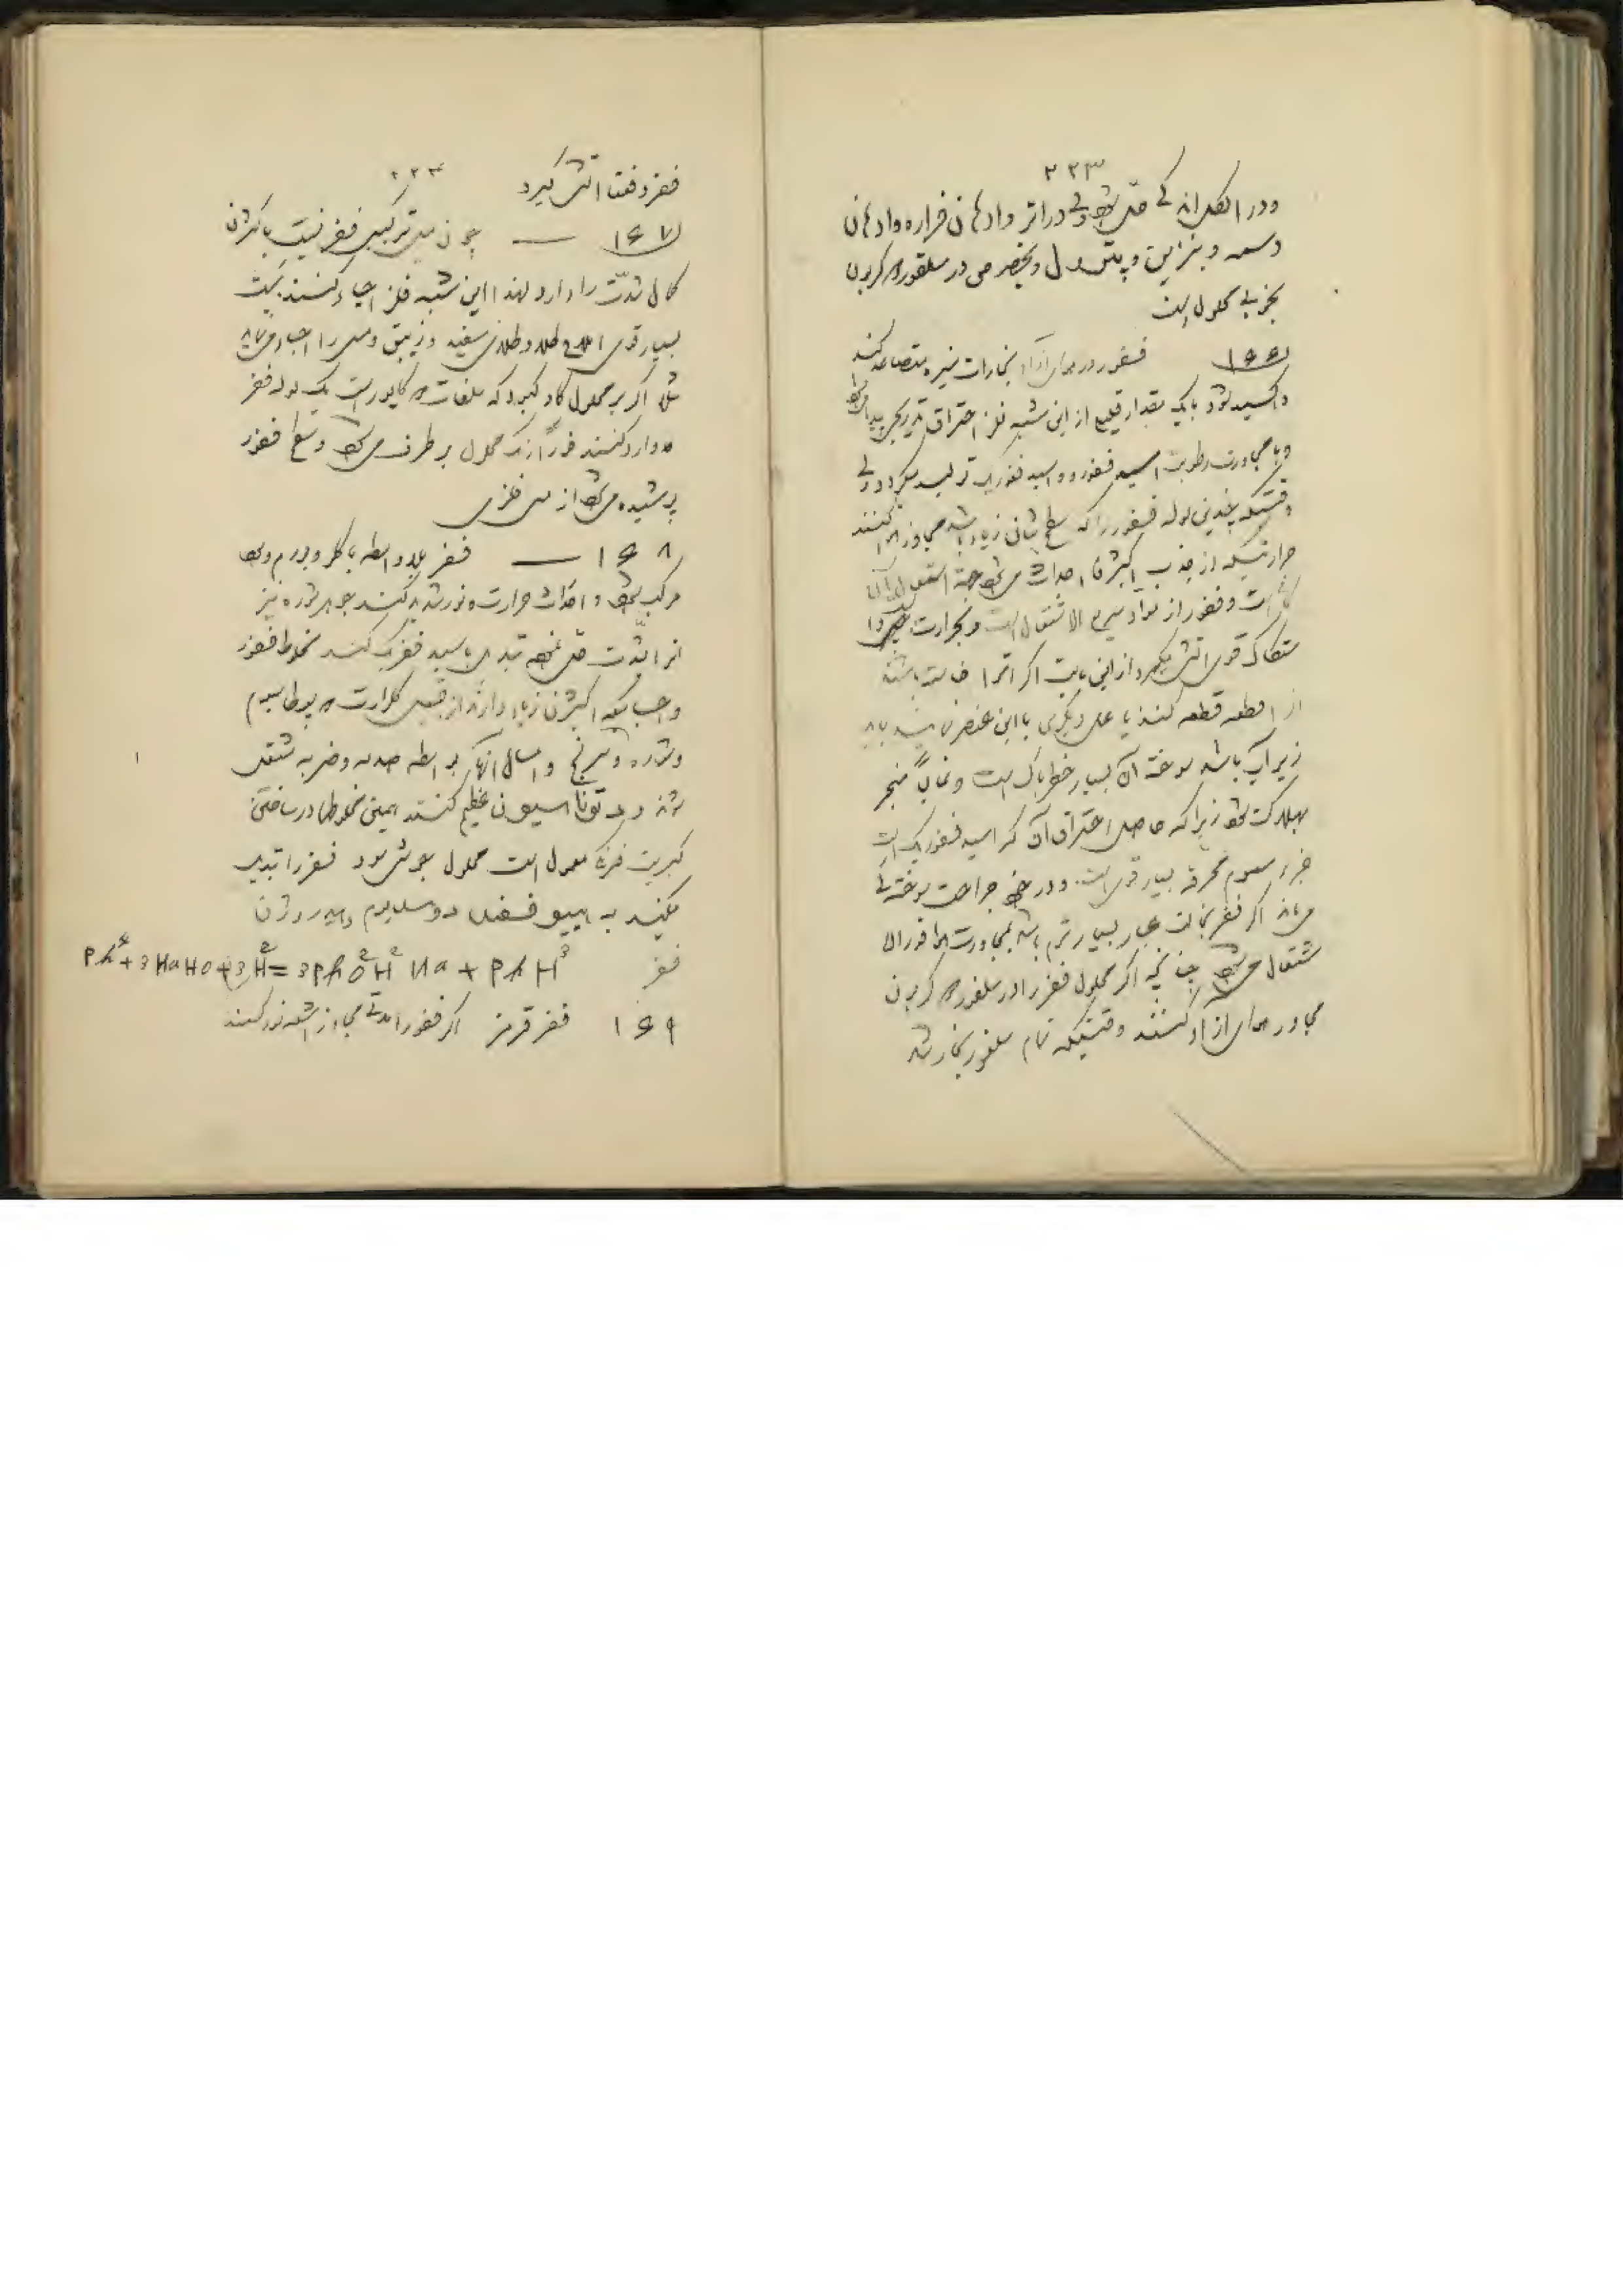 ۲۲۳
ودر الکل اند کی حل شود ولی در اتر و ادهان فراره و ادهان
دسمه و بنزین و پترول و بخصوص در سلفور کربون
بخوبی محلول است
۱۶۶ فسفور در هوای آزاد بخارات منیره متصاعد کند
و اکسیده شود با یک مقدار قلیل از این شبه فلز احتراق بتدریج
و با مجاورت رطوبت اسید فسفورو و اسید فسفوریک تولید میگردد ولی
وقتیکه چندین لوله فسفور را که سطح شان زیاد باشد مجاور هوا کنند
حرارتیکه از جذب اکیژن احداث می شود جهة اشتعال آنها
کافی است و فسفور از مواد سریع الاشتعال است و بحرارت
ستکاک قوی آتش میگیرد از این بابت اگر آنرا خواسته باشند
از قطعه قطعه کنند یا عمل دیگری با این عنصر نمایند باید
زیر آب باشد سوختن آن بسیار خطرناک است و غالباً منجر
بهلاکت شود زیرا که حاصل احتراق آن که اسید فسفوریک است
جزء سموم محرقه بسیار قوی است و در جراحت سوختگی
می ماند اگر فسفر بحالت غبار بسیار نرم باشد بمجاورت هوا فوراً
مشتعل می شود چنانچه اگر محلول فسفر را در سلفور کربون
مجاور هوای آزاد کنند وقتیکه تمام سلفور بخار شد
۲۲۳
فسفر دفعتاً آتش گیرد
۱۶۷ — چون میل ترکیبی فسفر نسبت باکیژن
کمال شدّت را دارد لهذا این شبه فلز احیا کننده ایست
بسیار قوی املاح طلا و طلای سفید و زیبق و مس را احیا می نماید
مثلا اگر بر محلول کات کبود که سلفات کاپور است یک لوله فسفر
وارد کنند فوراً رنگ محلول بر طرف می شود و سطح فسفور
پوشیده می شود از مس فلزی
۱۶۸ — فسفر بلاواسطه با کلر و برم و ید
مرکب شود و احداث حرارت و نور شدید کند جوهر شوره نیز
آنرا بشدّت حل نموده تبدیل باسید فسفریک کند مخلوط فسفور
و اجسامیکه اکیژن زیاد دارند از قبیل کلرات پوطاسیوم
و شوره و سرنج و امثال آنها که بواسطه صدمه و ضربه مشتعل
شوند و دتوناسیون عظیم کنند همین مخلوطها در ساختن
کبریت فرنگی معمول است محلول جوش سود فسفر را تبدیل
میکند به هیپو فسفیت دو سدیوم و هیدروژن
فسفر Ph⁴+3NaHo+3H²O=3PhO²H²Na+PhH³
۱۶۹ فسفر قرمز اگر فسفور را مدتی مجاور اشعه نور کنند